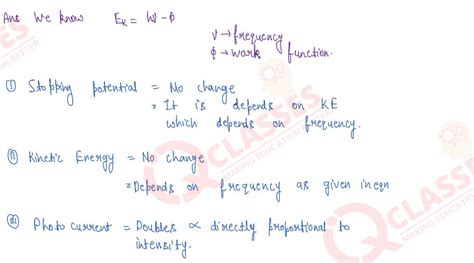 Ans We know Eₖ = hν - φ
ν → frequency
φ → work function.
(i) Stopping potential = No change
= It is depends on KE
which depends on frequency.
(ii) Kinetic Energy = No change
= Depends on frequency as given in eqn
(iii) Photo current = Doubles ∝ directly proportional to
intensity.
CLASSES
MAKING EDUCATION
CLASSES
MAKING EDUCATION